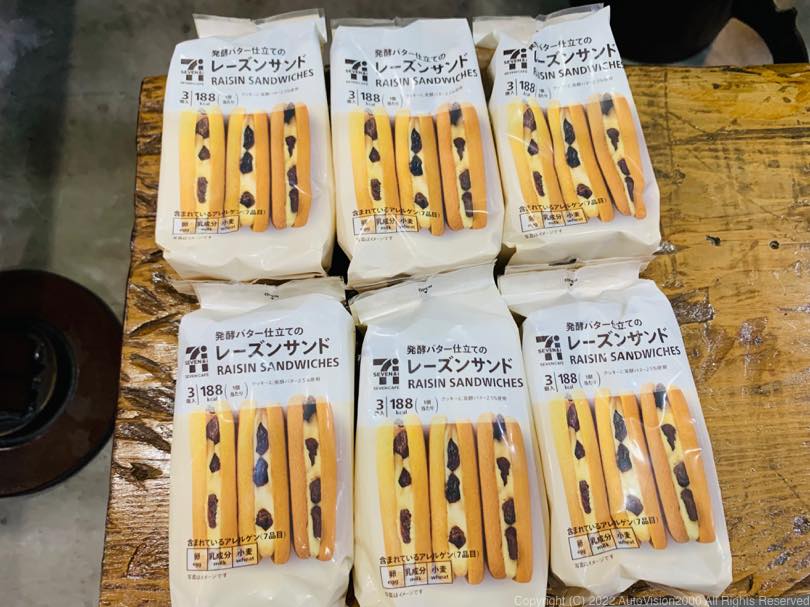 発酵バター仕立ての
レーズンサンド
RAISIN SANDWICHES
SEVEN&i
SEVEN CAFÉ
3個入
188 kcal
1個当たり
クッキーに、発酵バター2.5%使用
含まれているアレルゲン(7品目)
卵 egg
乳成分 milk
小麦 wheat
写真はイメージです
発酵バター仕立ての
レーズンサンド
RAISIN SANDWICHES
3個入
188 kcal
1個当たり
含まれているアレルゲン(7品目)
卵 egg
乳成分 milk
小麦 wheat
写真はイメージです
発酵バター仕立ての
レーズンサンド
RAISIN SANDWICHES
3個入
188 kcal
含まれているアレルゲン(7品目)
乳成分 milk
小麦 wheat
写真はイメージです
発酵バター仕立ての
レーズンサンド
RAISIN SANDWICHES
SEVEN&i
SEVEN CAFÉ
3個入
188 kcal
1個当たり
クッキーに、発酵バター2.5%使用
含まれているアレルゲン(7品目)
卵 egg
乳成分 milk
小麦 wheat
写真はイメージです
発酵バター仕立ての
レーズンサンド
RAISIN SANDWICHES
SEVEN&i
SEVEN CAFÉ
3個入
188 kcal
1個当たり
クッキーに、発酵バター2.5%使用
含まれているアレルゲン(7品目)
卵 egg
乳成分 milk
小麦 wheat
写真はイメージです
発酵バター仕立ての
レーズンサンド
RAISIN SANDWICHES
SEVEN&i
SEVEN CAFÉ
3個入
188 kcal
1個当たり
クッキーに、発酵バター2.5%使用
含まれているアレルゲン(7品目)
卵 egg
乳成分 milk
小麦 wheat
写真はイメージです
Copyright (C) 2022 AutoVision2000 All Rights Reserved.